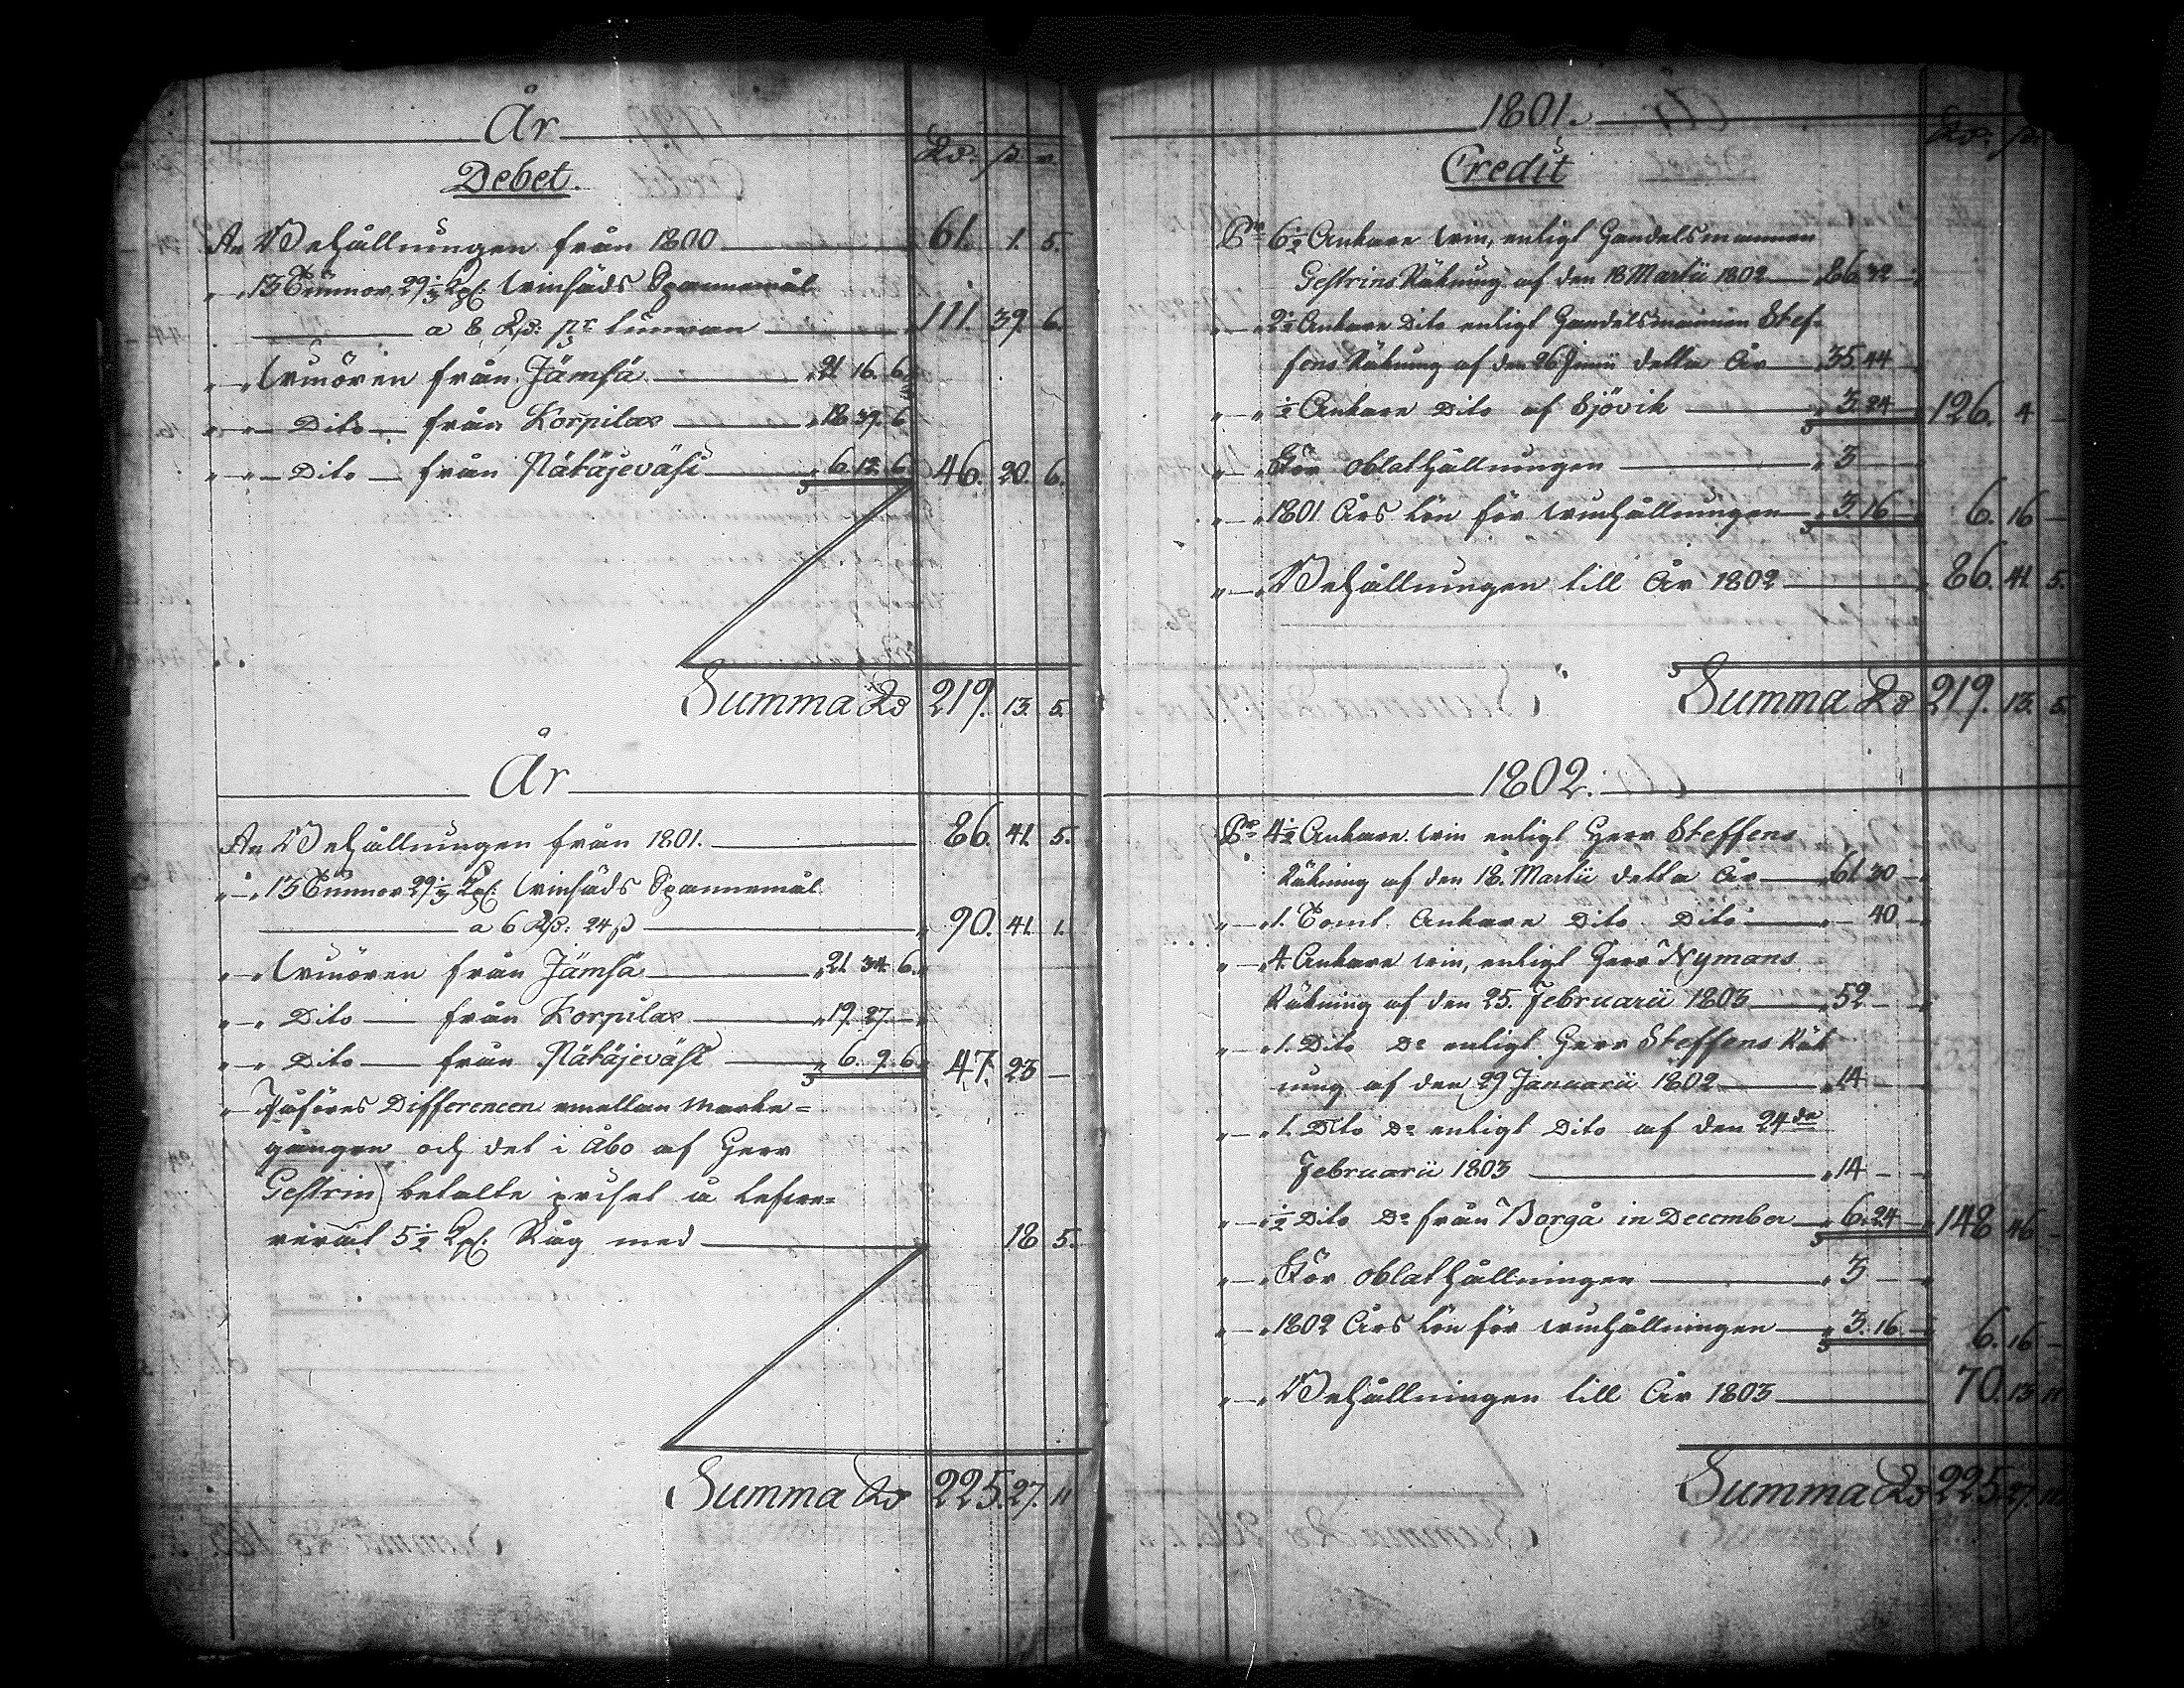 År
Debet.
Rd: ß. r.
An Behållningen från 1800 61. 1. 5.
" 13 Tunnor, 29 1/3 Kpr. Winsäds Spannemål
a 8 Rd: pr tunnan 111. 39. 6.
" Winören från Jämsä 21 16. 6.
" Dito från Korpilax 18 39. 6
" Dito från Pätäjeväsi 6. 12. 6 46. 20. 6.
Summa Rd 219. 13. 5.
År
An Behållningen från 1801. 86. 41. 5.
" 13 Tunnor 29 1/3 Kpr. Winsäds Spannemål
a 6 Rd: 24 ß 90. 41. 1.
" Winören från Jämsä 21 34. 6.
" Dito från Korpilax 19. 27.
" Dito från Pätäjeväsi 6. 9. 6 47. 23 —
" Påföres Differencen emellan Marke=
gången och det i Åbo af Herr
Gestrin betalte priset å lefve=
rerat 5 1/2 Kpr. Råg med 18 5.
Summa Rd 225. 27. 11
1801.
Credit
Rd: ß
Pr 6 1/2 Ankare win, enligt Handelsmannen
Gestrins Räkning af den 18 Martii 1802 86. 32
" 2 1/2 Ankare Dito enligt Handelsmannen Stef=
fens Räkning af den 26 Junii detta År 35. 44
" 1/2 Ankare Dito af Sjövik 3. 24 126. 4 —
" För oblathållningen 3
" 1801 Års Lön för winhållningen 3. 16 6. 16 —
" Behållningen till År 1802 86. 41. 5.
Summa Rd 219. 13. 5.
1802.
Pr 4 1/2 Ankare win enligt Herr Steffens
Räkning af den 18. Martii detta År 61 30
" 1. Tomt Ankare Dito Dito 40
" 4 Ankare win, enligt Herr Nymans
Räkning af den 25. Februarii 1803 52
" 1. Dito Do enligt Herr Steffens Räk
ning af den 29 Januarii 1802 14
" 1. Dito Do enligt Dito af den 24de
Februarii 1803 14
" 1/2 Dito Do från Borgå in December 6. 24 148 46 —
" För oblathållningen 3
" 1802 Års Lön för winhållningen 3. 16. 6. 16 —
" Behållningen till År 1803 70. 13 11
Summa Rd 225. 27. 11